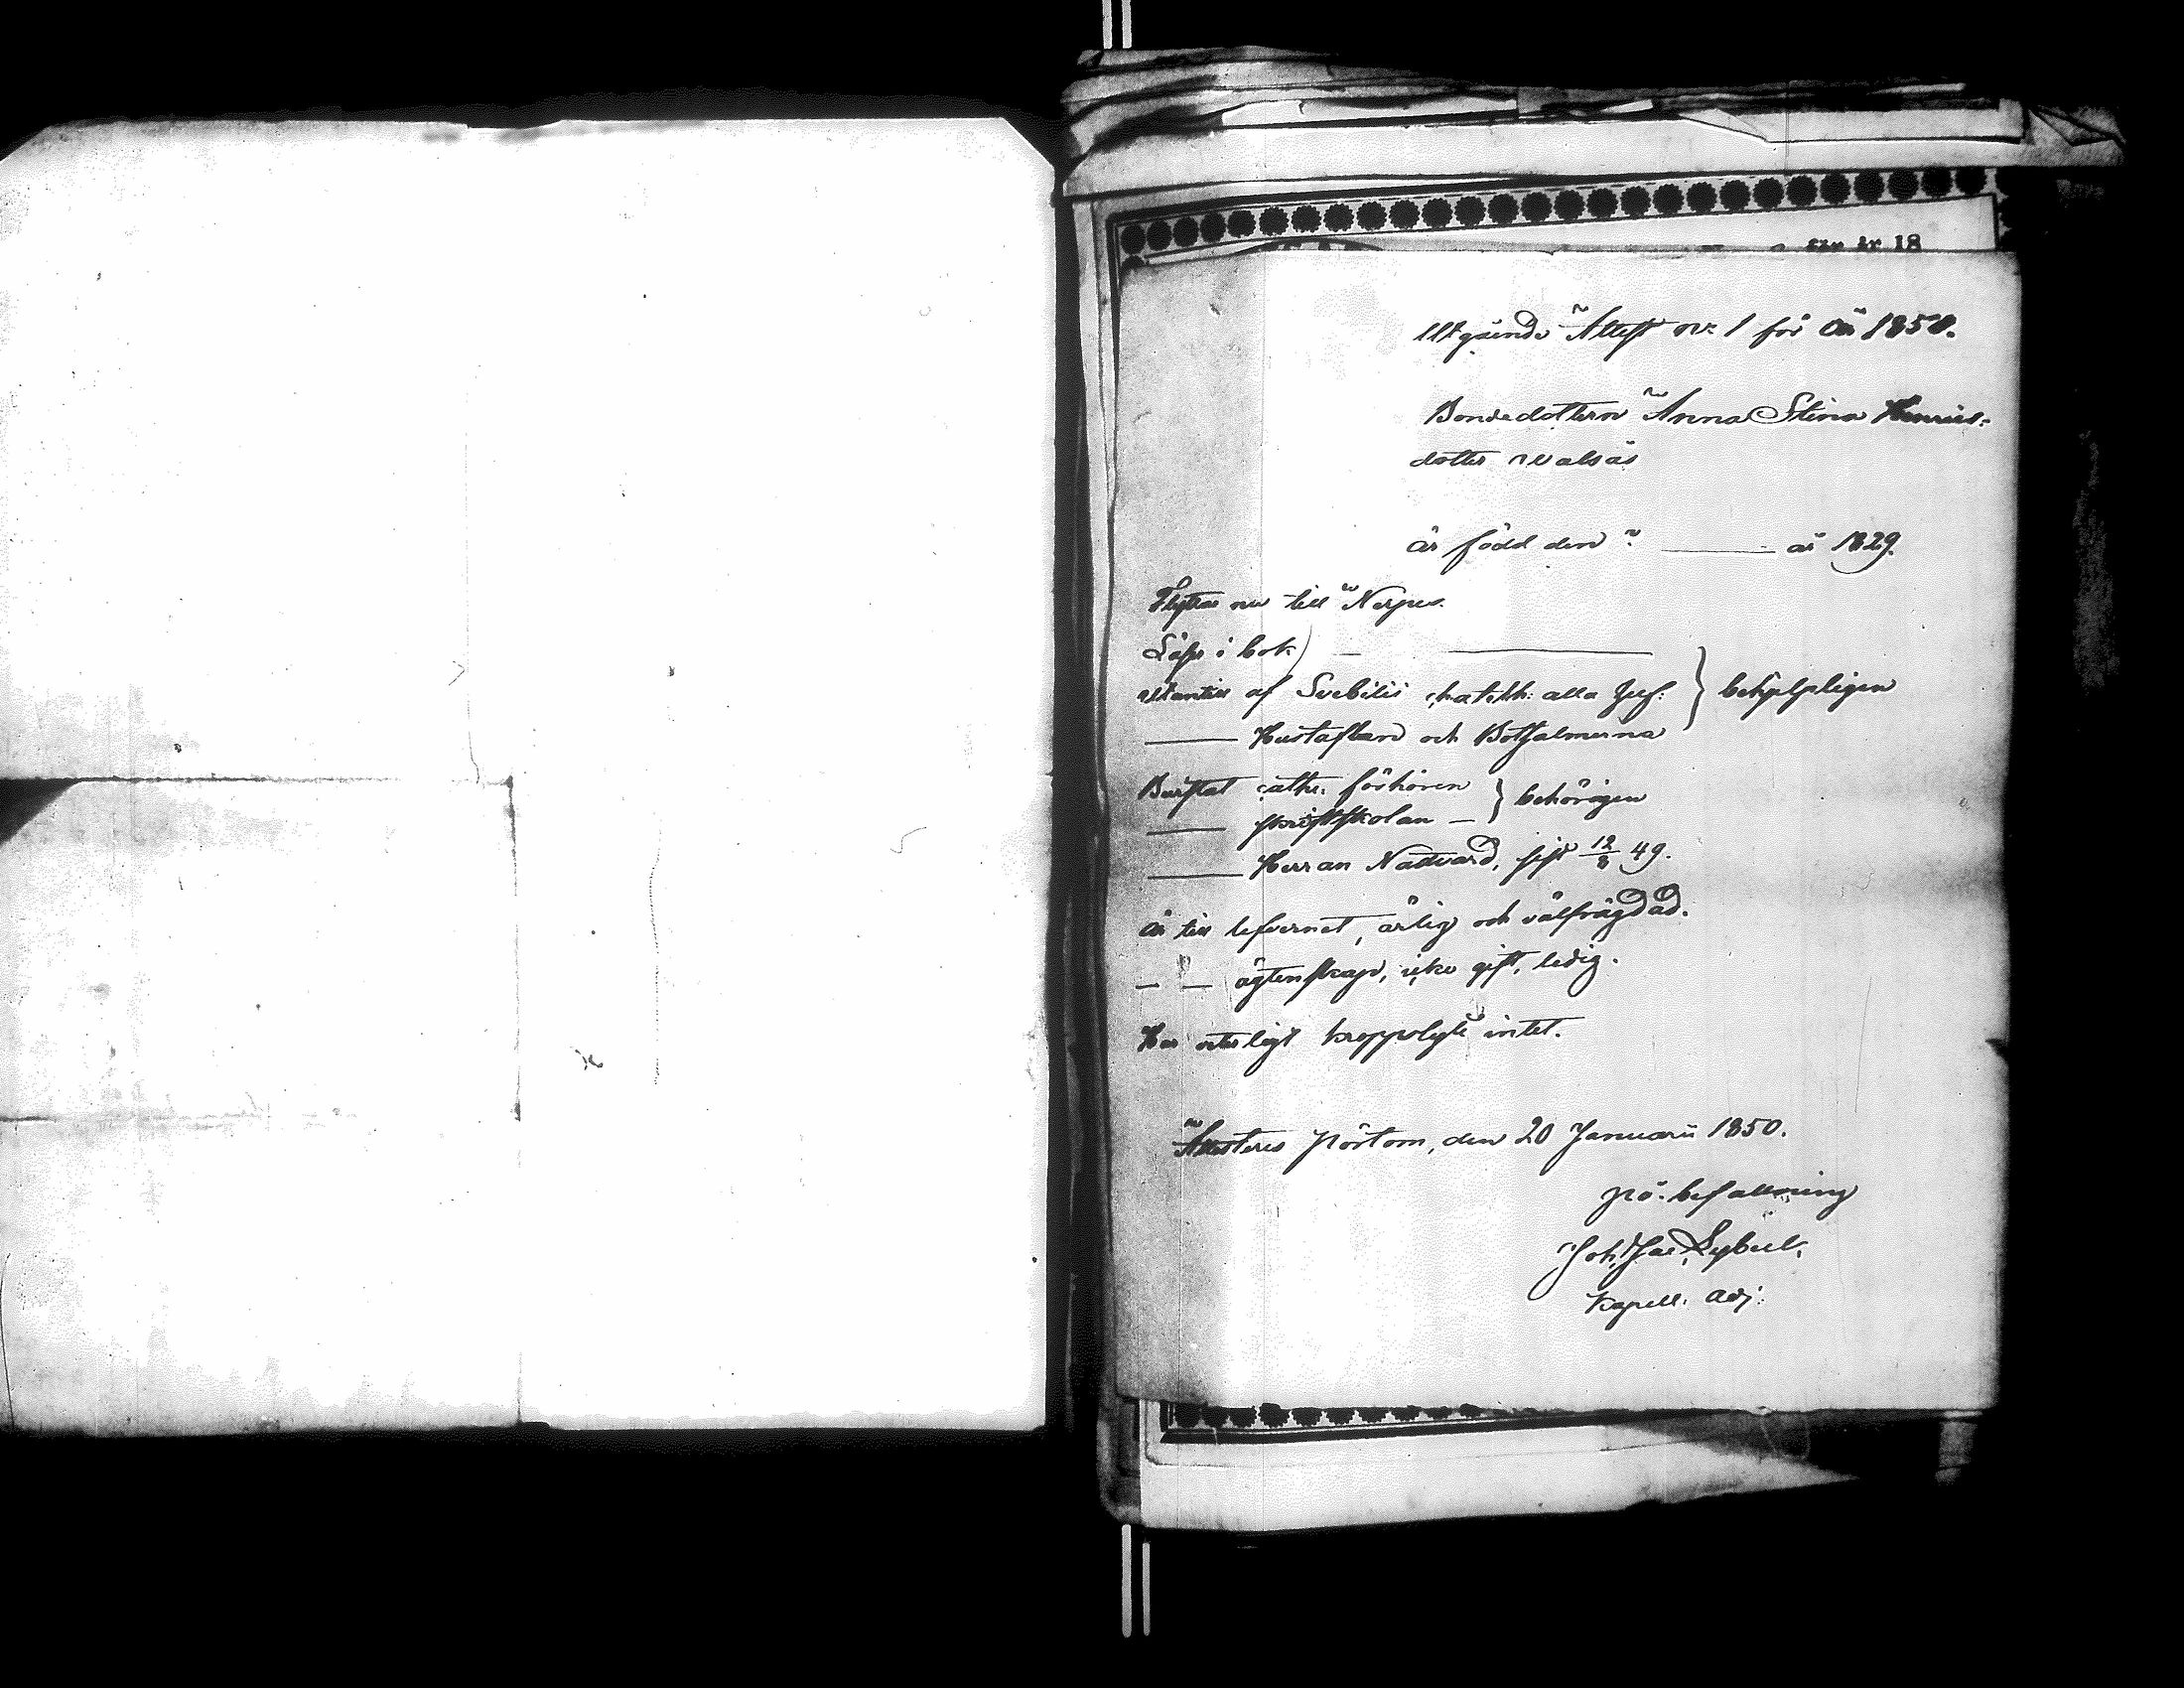 för år 18
Utgående Attest nr. 1 för år 1850.
Bondedottern Anna Stina Henriks-
dotter
är född den ___ år 1829.
Flyttar nu till Nerpes.
Läser i bok) —
utantill af Svebilii chatekh: alla
Hustaflan och Botpsalmerna } behjelpligen
Bevistat cathe. förhören
skriftskolan — } behörigen
Herran Nattvard, sist 12/8 49.
Är till lefvernet, ärlig och välfrägdad.
— — ägtenskap, icke gift, ledig.
Har ytterligt kroppslyte intet.
Attesteres Pörtom, den 20 Januarii 1850.
på befallning
Joh. Jac.
Kapell. adj: